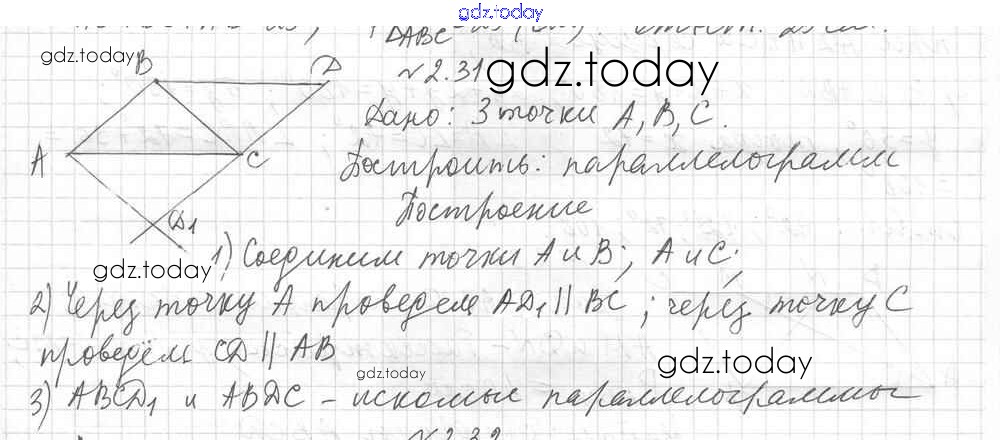 gdz.today
gdz.today
△ABC
№2.31
gdz.today
B
D
A
C
D₁
Дано: 3 точки A, B, C.
Построить: параллелограмм
Построение
gdz.today
1) Соединим точки A и B; A и C;
2) Через точку A проведем AD₁ || BC; через точку C
проведём CD || AB
gdz.today
gdz.today
3) ABCD₁ и ABDC – искомые параллелограммы
№2.32